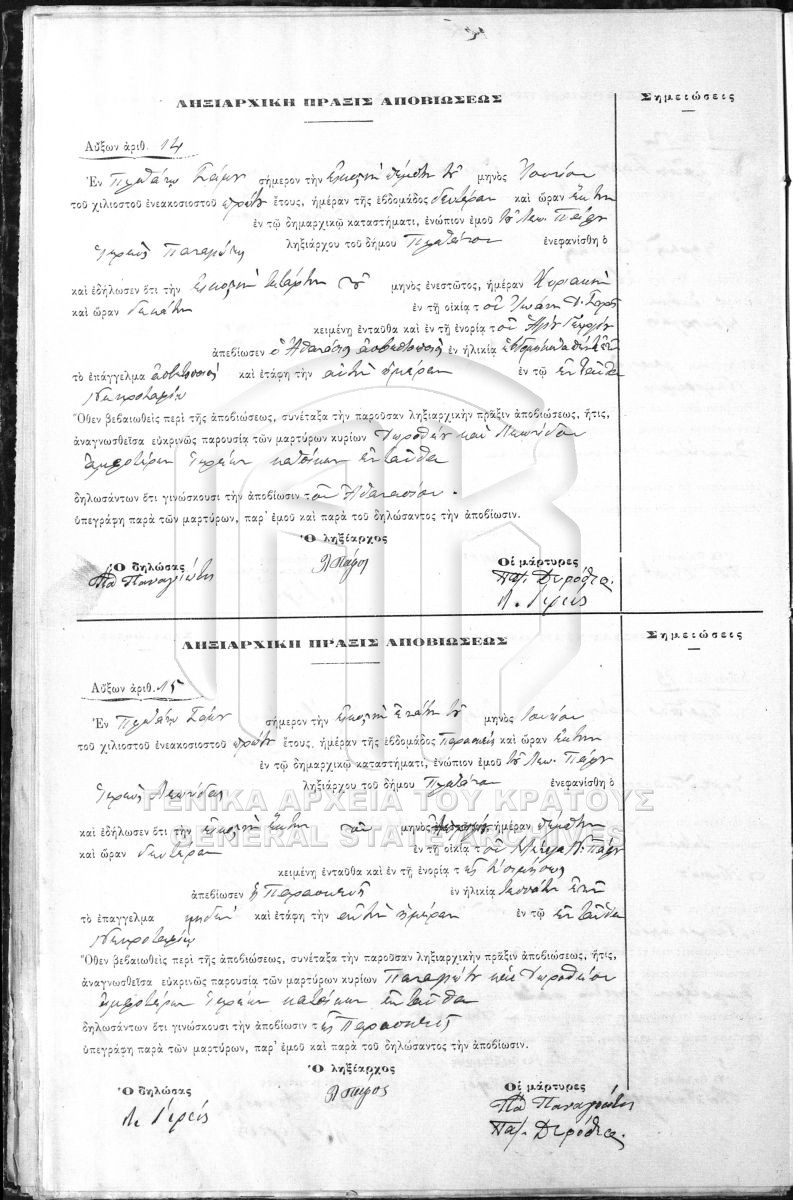 ΛΗΞΙΑΡΧΙΚΗ ΠΡΑΞΙΣ ΑΠΟΒΙΩΣΕΩΣ
Σημειώσεις
Αὔξων ἀριθ. 14
Ἐν Πλατάνῳ Σάμου σήμερον τὴν εἰκοστὴν πέμπτην τοῦ μηνὸς Ἰουνίου
τοῦ χιλιοστοῦ ἐνεακοσιοστοῦ πρώτου ἔτους, ἡμέραν τῆς ἑβδομάδος δευτέραν καὶ ὥραν ἕκτην
ἐν τῷ δημαρχικῷ καταστήματι, ἐνώπιον ἐμοῦ τοῦ Πάχου
ληξιάρχου τοῦ δήμου Πλατάνου ἐνεφανίσθη ὁ
Ἱερεὺς Παναγιώτης
καὶ ἐδήλωσεν ὅτι τὴν εἰκοστὴν τετάρτην τοῦ μηνὸς ἐνεστῶτος, ἡμέραν Κυριακὴν
καὶ ὥραν δεκάτην ἐν τῇ οἰκίᾳ τοῦ Ἰωάν.
κειμένῃ ἐνταῦθα καὶ ἐν τῇ ἐνορίᾳ τοῦ Ἁγίου Γεωργίου
ἀπεβίωσεν ὁ Ἀθανάσιος ἐν ἡλικίᾳ ἐτῶν
τὸ ἐπάγγελμα καὶ ἐτάφη τὴν αὐτὴν ἡμέραν ἐν τῷ ἐνταῦθα
Νεκροταφείῳ
Ὅθεν βεβαιωθεὶς περὶ τῆς ἀποβιώσεως, συνέταξα τὴν παροῦσαν ληξιαρχικὴν πρᾶξιν ἀποβιώσεως, ἥτις,
ἀναγνωσθεῖσα εὐκρινῶς παρουσίᾳ τῶν μαρτύρων κυρίων Δωροθέου καὶ Λεωνίδου
ἀμφοτέρων Ἱερέων κατοίκων ἐνταῦθα
δηλωσάντων ὅτι γινώσκουσι τὴν ἀποβίωσιν τοῦ Ἀθανασίου.
ὑπεγράφη παρὰ τῶν μαρτύρων, παρ' ἐμοῦ καὶ παρὰ τοῦ δηλώσαντος τὴν ἀποβίωσιν.
Ὁ ληξίαρχος
Ὁ δηλώσας
Οἱ μάρτυρες
Πα Παναγιώτης
Λ Πάχος
Παπ. Δωρόθεος.
Λ. Ἱερεύς
ΛΗΞΙΑΡΧΙΚΗ ΠΡΑΞΙΣ ΑΠΟΒΙΩΣΕΩΣ
Σημειώσεις
Αὔξων ἀριθ. 15
Ἐν Πλατάνῳ Σάμου σήμερον τὴν εἰκοστὴν ἐνάτην τοῦ μηνὸς Ἰουνίου
τοῦ χιλιοστοῦ ἐνεακοσιοστοῦ πρώτου ἔτους, ἡμέραν τῆς ἑβδομάδος Παρασκευὴν καὶ ὥραν ἕκτην
ἐν τῷ δημαρχικῷ καταστήματι, ἐνώπιον ἐμοῦ τοῦ Πάχου
ληξιάρχου τοῦ δήμου Πλατάνου ἐνεφανίσθη ὁ
Ἱερεὺς Λεωνίδας
ΓΕΝΙΚΑ ΑΡΧΕΙΑ ΤΟΥ ΚΡΑΤΟΥΣ
καὶ ἐδήλωσεν ὅτι τὴν τοῦ μηνὸς ἡμέραν πέμπτην
GENERAL STATE ARCHIVES
καὶ ὥραν δευτέραν ἐν τῇ οἰκίᾳ τοῦ
κειμένῃ ἐνταῦθα καὶ ἐν τῇ ἐνορίᾳ τῆς Κοιμήσεως
ἀπεβίωσεν ἡ Παρασκευὴ ἐν ἡλικίᾳ ἐτῶν
τὸ ἐπάγγελμα καὶ ἐτάφη τὴν αὐτὴν ἡμέραν ἐν τῷ ἐνταῦθα
Νεκροταφείῳ
Ὅθεν βεβαιωθεὶς περὶ τῆς ἀποβιώσεως, συνέταξα τὴν παροῦσαν ληξιαρχικὴν πρᾶξιν ἀποβιώσεως, ἥτις,
ἀναγνωσθεῖσα εὐκρινῶς παρουσίᾳ τῶν μαρτύρων κυρίων Παναγιώτου καὶ Δωροθέου
ἀμφοτέρων Ἱερέων κατοίκων ἐνταῦθα
δηλωσάντων ὅτι γινώσκουσι τὴν ἀποβίωσιν τῆς Παρασκευῆς
ὑπεγράφη παρὰ τῶν μαρτύρων, παρ' ἐμοῦ καὶ παρὰ τοῦ δηλώσαντος τὴν ἀποβίωσιν.
Ὁ ληξίαρχος
Ὁ δηλώσας
Οἱ μάρτυρες
Λ. Ἱερεύς
Λ Πάχος
Πα Παναγιώτης
Παπ. Δωρόθεος.